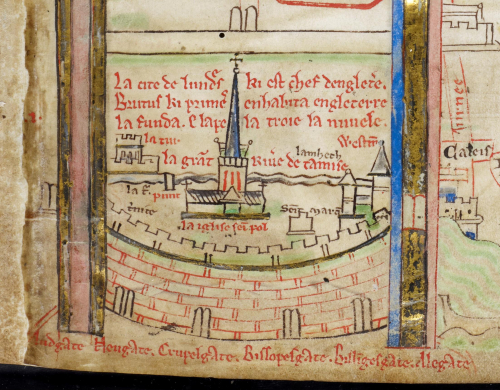 La cite de lundr̃ ki est chef denglet̃e.
Brutus ki prim̃e enhabita engleterre
la funda. E lape la troie la nuvele.
la tur
Westm̃
lambeth
la grãt Rivẽ de tamise
la
punt
Calais
la iglise sein pol
Ludgate. Neugate. Crupelgate. Bissopesgate. Billigesgate. Alegate.